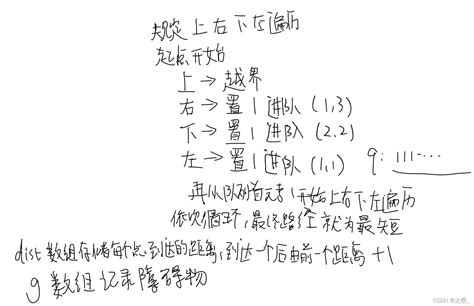 规定上右下左遍历
起点开始
上→越界
右→置1进队(1,3)
下→置1进队(2,2)
左→置1进队(1,1) q: 111-...
再从队列首元素1开始上右下左遍历
依次循环,最终路径就为最短
dist数组存储每个点到达的距离,到达一个后由前一个距离+1
g数组记录障碍物
CSDN @之墨_